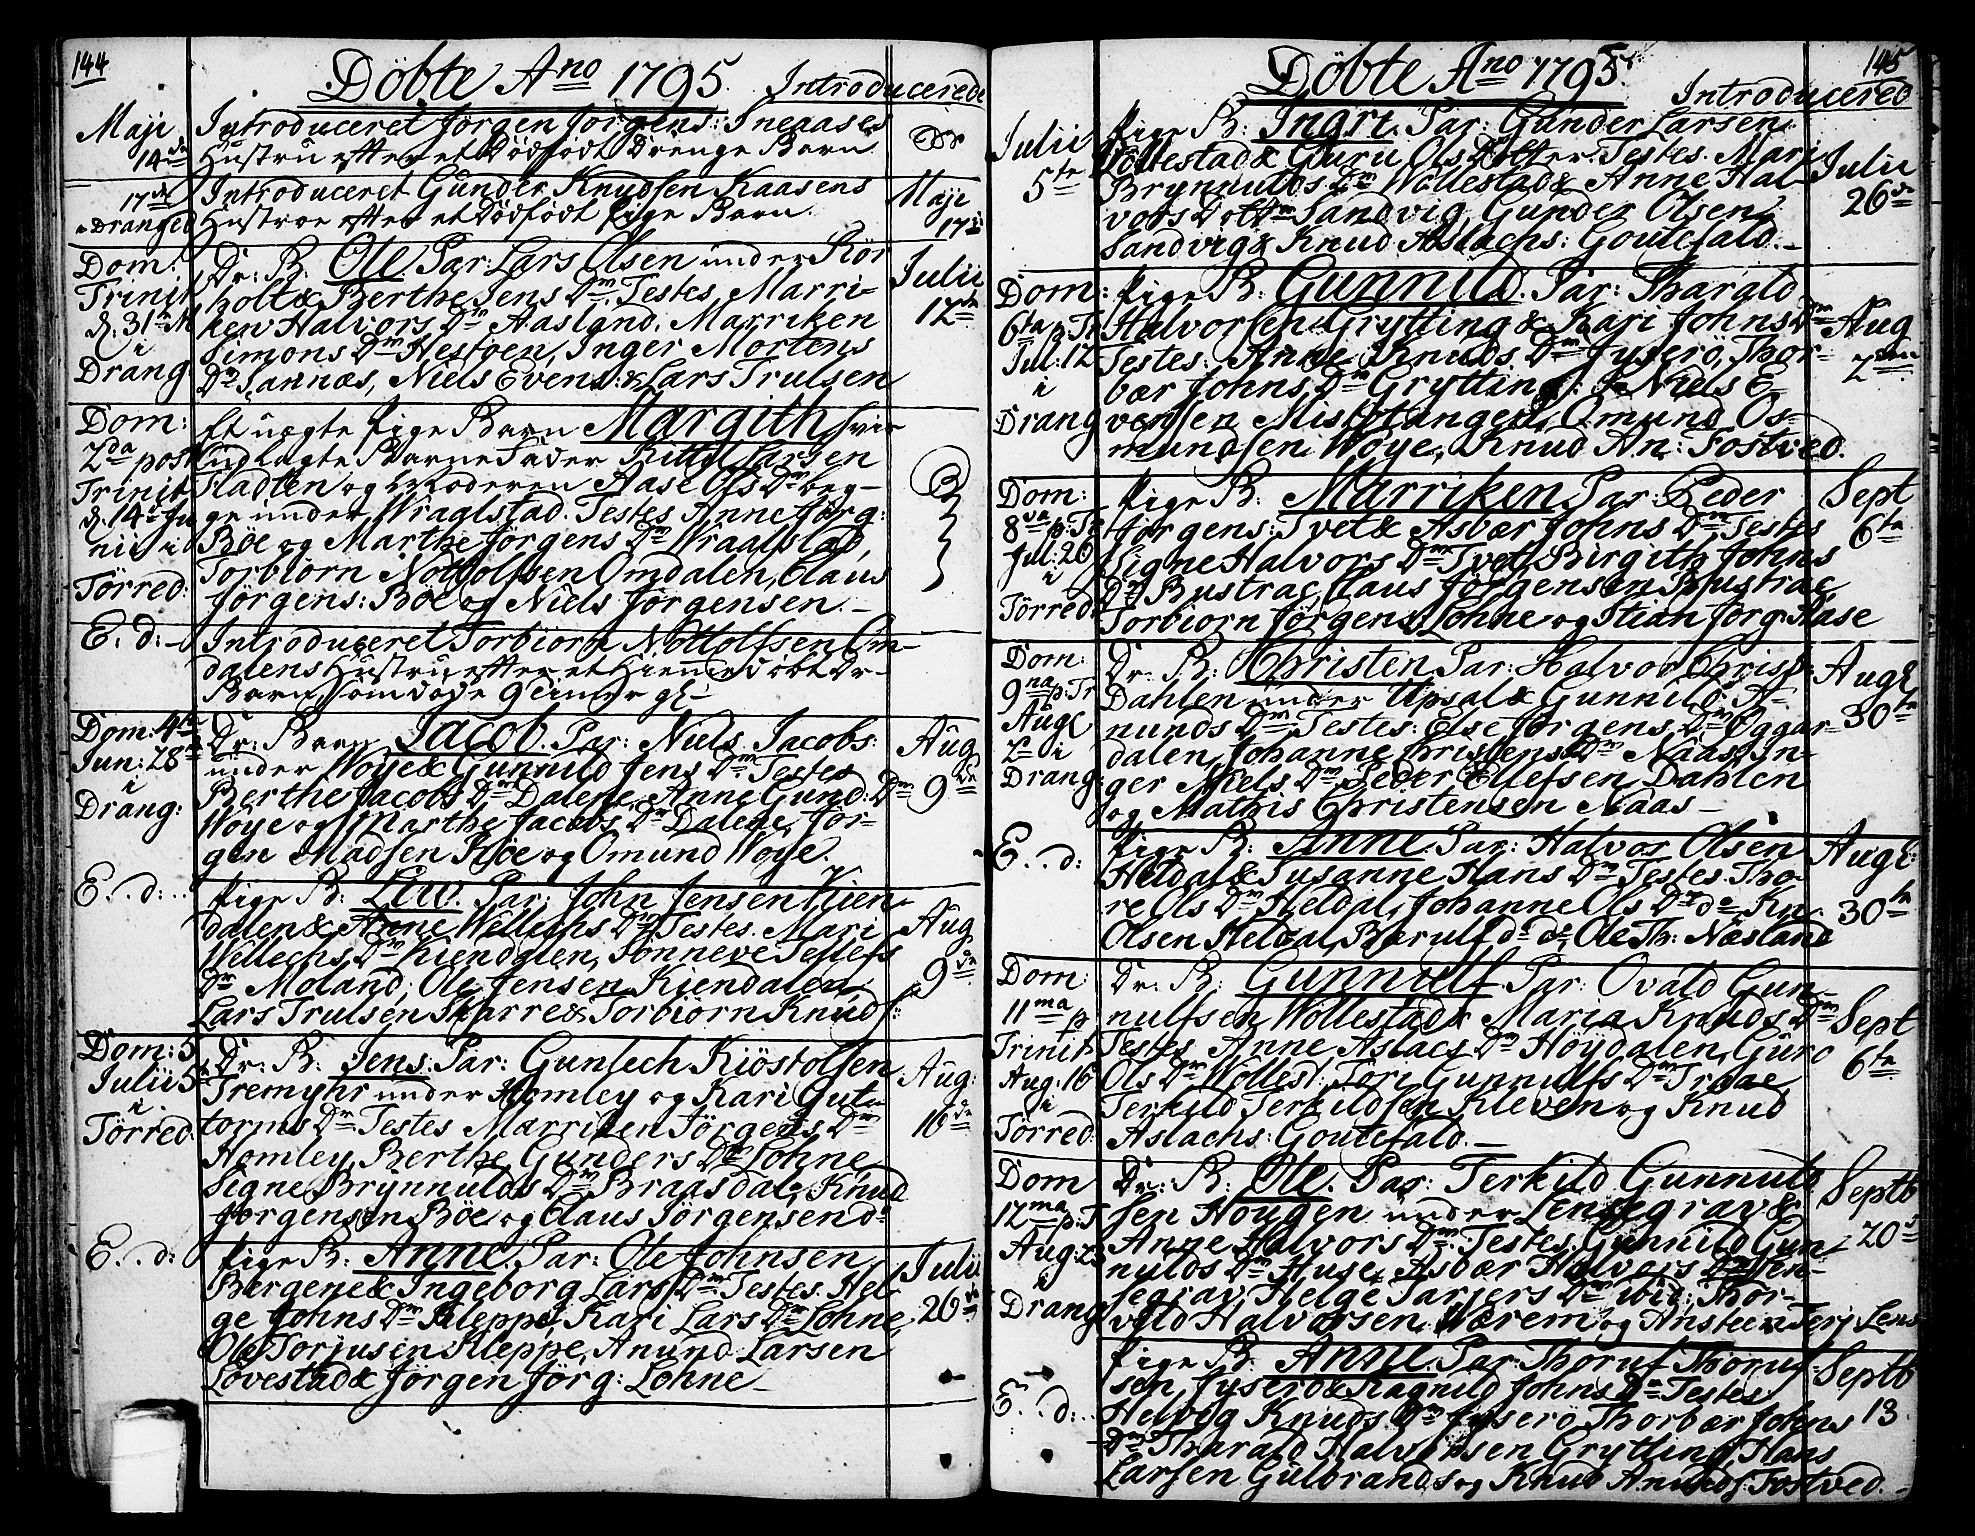 144
Döbte Ano 1795.
Introducerede
Maji 14de
Introduceret Jörgen Jörgens: Sneaases
Hustru efter et Dödfödt Drenge Barn
17de Dranged
Introduceret Gunder Knudsen Kaasens
Hustroe efter et Dödfödt Pige Barn.
Maji 17de
Dom: Trinit d. 31te M i Drang
Dr: B: Ole. Par: Lars Olsen under Rör
holt & Berthe Jens Dm. Testes. Marri-
ken Halvors Dm Aasland, Marriken
Simons Dm Nestöen, Inger Mortens
Dm Sannæs, Niels Evens: & Lars Trulsen
Julii 12te
Dom: 2da post Trinit d. 14de Junii i Törred:
Et uægte Pige Barn Margith hvis
udlagte Barne Fader Kittil Larsen
Fladten og Moderen Aase Ols Dm beg-
ge under Wraalstad. Testes Anne Jörg:
Böe og Marthe Jörgens Dm Wraalstad,
Torbiorn Nottolfsen Omdalen, Claus
Jörgens: Böe og Niels Jörgensen.
E. d:
Introduceret Torbiorn Nottolfsen Om-
dalens Hustru efter et Hiemedöbt Dr-
Barn som döde
Dom: 4ta Jun: 28de i Drang:
Dr: Barn Jacob. Par: Niels Jacobs:
under Woye & Gunnild Jens Dm Testes
Berthe Jacobs Dm Dalene, Anne Gund: Dm
Woye og Marthe Jacobs Dm Dalene, Jör-
gen Madsen Böe og Omund Woye.
Aug 9de
E. d:
Pige B: Liv. Par: John Jensen Kien-
dalen & Anne Wellechs Dm Testes. Mari
Wellechs Dm Kiendalen, Sönneve Tellefs
Dm Moland, Ole Jensen Kiendalen,
Lars Trulsen Skarre & Torbiörn Knuds:
Aug 9de
Dom: 5 Julii 5 i Törred:
Dr: B: Jens. Par: Gunlech Kiöstolsen
Tremyhr under Homley og Kari Gut-
torms Dm Testes Marriken Jörgens Dm
Homley, Berthe Gunders Dm Lohne,
Signe Brynnulds Dm Braasdal, Knud
Jörgensen Böe og Claus Jörgensen do
Aug: 16de
E. d:
Pige B: Anne. Par: Ole Johnsen
Bergene & Ingeborg Lars Dm Testes. Hel-
ge Johns Dm Kleppe, Kari Lars Dm Lohne,
Ole Torjusen Kleppe, Anund Larsen
Lövestad & Jörgen Jörg: Lohne
Julii 26de
145
Döbte Ano 1795.
Introducered
Julii 5te
Pige B: Ingri. Par: Gunder Larsen
Wöllestad & Guru Ols Dotter. Testes. Mari
Brynnulds Dm Wöllestad & Anne Hal-
vors Dottm Sandvig, Gunder Olsen
Sandvig & Knud Aslachs: Goutefald.
Julii 26de
Dom: 6ta p: Tr Jul: 12 i Drang
Pige B: Gunnild. Par: Tharald
Halvorsen Grytting & Kari Johns Dm
Testes. Anne Knuds Dm Fyserö, Thor-
bær Johns Dm Grytting: & Niels E-
vensen Mistotangen, Omund Os-
mundsen Woye, Knud An: Fostved.
Aug 2den
Dom: 8va p: Tr Jul: 26 i Törred
Pige B: Marriken. Par: Peder
Jörgens: Tvet & Asbær Johns Dm Testes
Signe Halvors Dm Tvet, Birgith Johns
Dm Bustrac, Claus Jörgensen Bustrac,
Torbiorn Jörgens: Lohne og Stian Jörg: Aase
Sept 6te
Dom: 9na p: Tr Aug 2 i Drang:
Dr: B: Christen. Par: Halvor Christ:
Dahlen under Upsal & Gunnild A-
nunds Dm Testes: Else Jörgens Dm Oggar-
dalen, Johanne Christens Dm Naas, In-
ger Niels Dm Peder Ellefsen Dahlen
og Mathis Christensen Naas
Aug: 30te
E. d:
Pige B: Anne. Par: Halvor Olsen
Heldal & Susanne Hans Dm Testes. Tho-
re Ols Dm Heldal, Johanne Ols Dm do Kn:
Olsen Heldal, Bærulf do do Ole Th: Næsland
Aug: 30te
Dom: 11ma p Trinit: Aug: 16 i Törred:
Dr: B: Gunnulf. Par: Ovald Gun-
nulfsen Wöllestad & Maria Knuds Dm
Testes. Anne Aslacs Dm Höydalen, Guro
Ols Dm Wöllest: Tori Gunnulfs Dm Traae
Terkild Terkildsen Kleven og Knud
Aslachs: Goutefald.
Sept 6te
Dom 12ma p: T Aug: 23 i Drang
Dr: B: Ole. Par: Terkild Gunnuld
sen Hougen under Lensegrav &
Anne Halvors Dm. Testes. Gunnild Gun-
nulds Dm Huse, Asbær Halvors Dm Len-
segrav, Helge Tarjers Dm ibid: Thor-
vild Halvorsen Wærem og Ansteen Terj: Lens
Septb 20
E. d:
Pige B: Anne. Par: Thoruf Thoruf-
sen Fyserö & Ragnild Johns Dm Testes
Helvig Knuds Dm Fyserö, Thorbær Johns
Dm Tharald Halvorsen Grytting, Hans
Larsen Gulbrands: og Knud Anunds: Fostved.
Septb 13